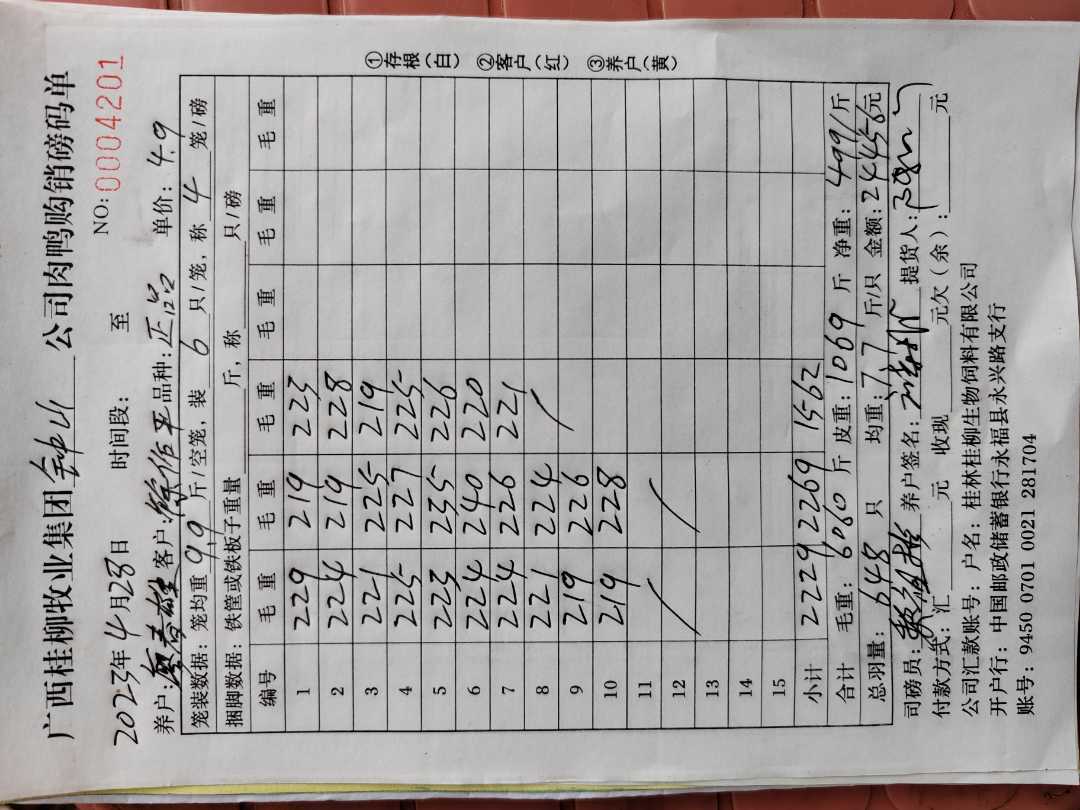 ①存根(白) ②客户(红) ③养户(黄)
广西桂柳牧业集团钟山公司肉鸭购销磅码单
NO:0004201
2023年4月28日 时间段: 至
养户: 客户:徐作平 品种:正品 单价:4.9
笼装数据: 笼均重 9.9 斤/空笼, 装 6 只/笼, 称 4 笼/磅
捆脚数据: 铁筐或铁板子重量 斤, 称 只/磅
编号 毛重 毛重 毛重 毛重 毛重 毛重
1 229 219 223
2 224 219 228
3 221 225 219
4 225 227 225
5 223 235 226
6 224 240 220
7 224 226 221
8 221 224 /
9 219 226
10 219 228
11 / /
12
13
14
15
小计 2229 2269 1562
合计 毛重: 6060 斤 皮重: 1069 斤 净重: 4991 斤
总羽量: 648 只 均重: 7.7 斤/只 金额: 24456元
司磅员: 养户签名: 提货人:
付款方式: 汇 元 收现 元欠(余): 元
公司汇款账号: 户名: 桂林桂柳生物饲料有限公司
开户行: 中国邮政储蓄银行永福县永兴路支行
账号: 9450 0701 0021 281704